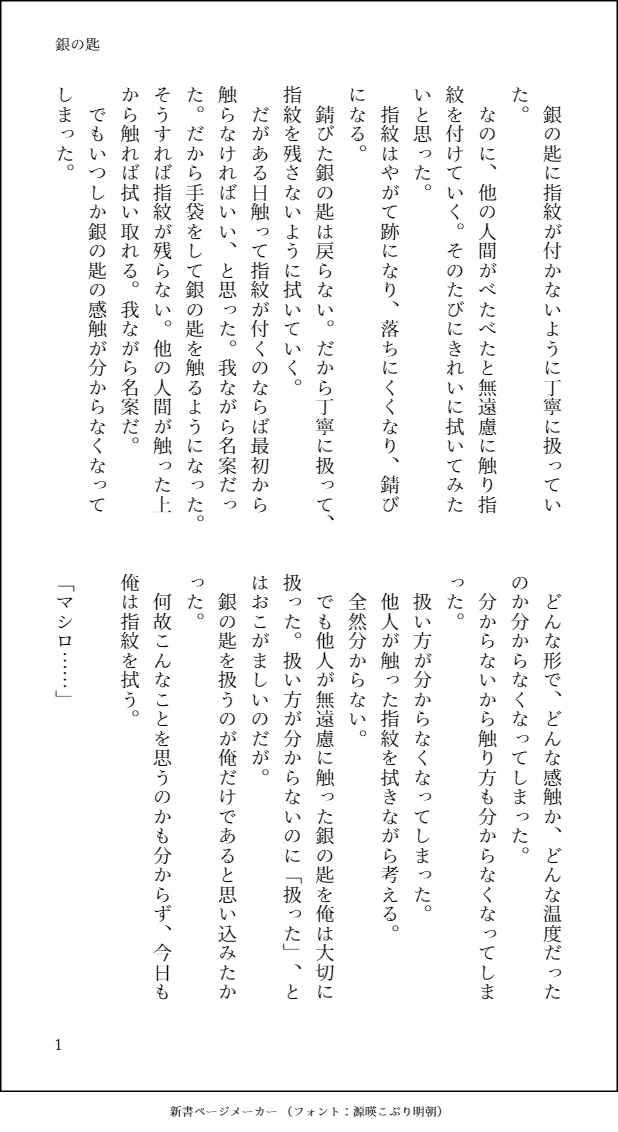 銀の匙
　銀の匙に指紋が付かないように丁寧に扱ってい
た。
　なのに、他の人間がべたべたと無遠慮に触り指
紋を付けていく。そのたびにきれいに拭いてみた
いと思った。
　指紋はやがて跡になり、落ちにくくなり、錆び
になる。
　錆びた銀の匙は戻らない。だから丁寧に扱って、
指紋を残さないように拭いていく。
　だがある日触って指紋が付くのならば最初から
触らなければいい、と思った。我ながら名案だっ
た。だから手袋をして銀の匙を触るようになった。
そうすれば指紋が残らない。他の人間が触った上
から触れば拭い取れる。我ながら名案だ。
　でもいつしか銀の匙の感触が分からなくなって
しまった。
　どんな形で、どんな感触か、どんな温度だった
のか分からなくなってしまった。
　分からないから触り方も分からなくなってしま
った。
　扱い方が分からなくなってしまった。
　他人が触った指紋を拭きながら考える。
　全然分からない。
　でも他人が無遠慮に触った銀の匙を俺は大切に
扱った。扱い方が分からないのに「扱った」、と
はおこがましいのだが。
　銀の匙を扱うのが俺だけであると思い込みたか
った。
　何故こんなことを思うのかも分からず、今日も
俺は指紋を拭う。
「マシロ……」
1
新書ページメーカー（フォント：源暎こぶり明朝）